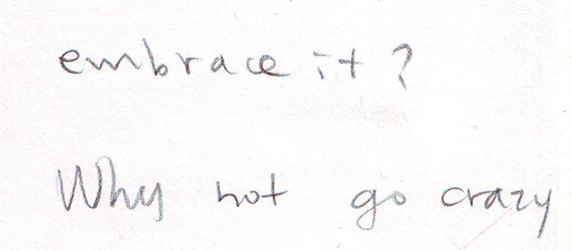 embrace it?
Why not go crazy